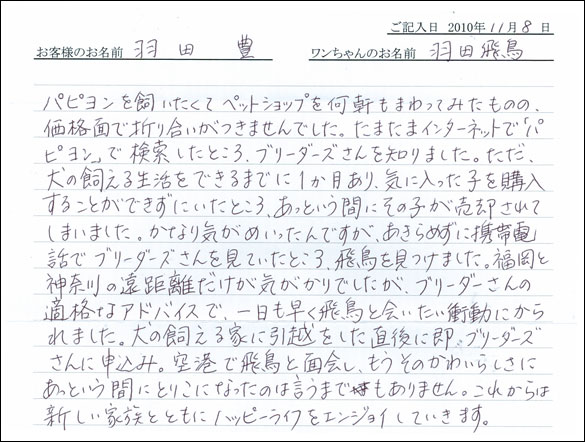 ご記入日 2010年 11月 8日
お客様のお名前 羽田 豊 ワンちゃんのお名前 羽田飛鳥
パピヨンを飼いたくてペットショップを何軒もまわってみたものの、
価格面で折り合いがつきませんでした。たまたまインターネットで「パ
ピヨン」で検索したところ、ブリーダーズさんを知りました。ただ、
犬の飼える生活をできるまでに1か月あり、気に入った子を購入
することができずにいたところ、あっという間にその子が売却されて
しまいました。かなり気がめいったんですが、あきらめずに携帯電
話でブリーダーズさんを見ていたところ、飛鳥を見つけました。福岡と
神奈川の遠距離だけが気がかりでしたが、ブリーダーさんの
適格なアドバイスで、一日も早く飛鳥と会いたい衝動にから
れました。犬の飼える家に引越をした直後に即、ブリーダーズ
さんに申込み。空港で飛鳥と面会し、もうそのかわいらしさに
あっという間にとりこになったのは言うまでもありません。これからは
新しい家族とともにハッピーライフをエンジョイしていきます。